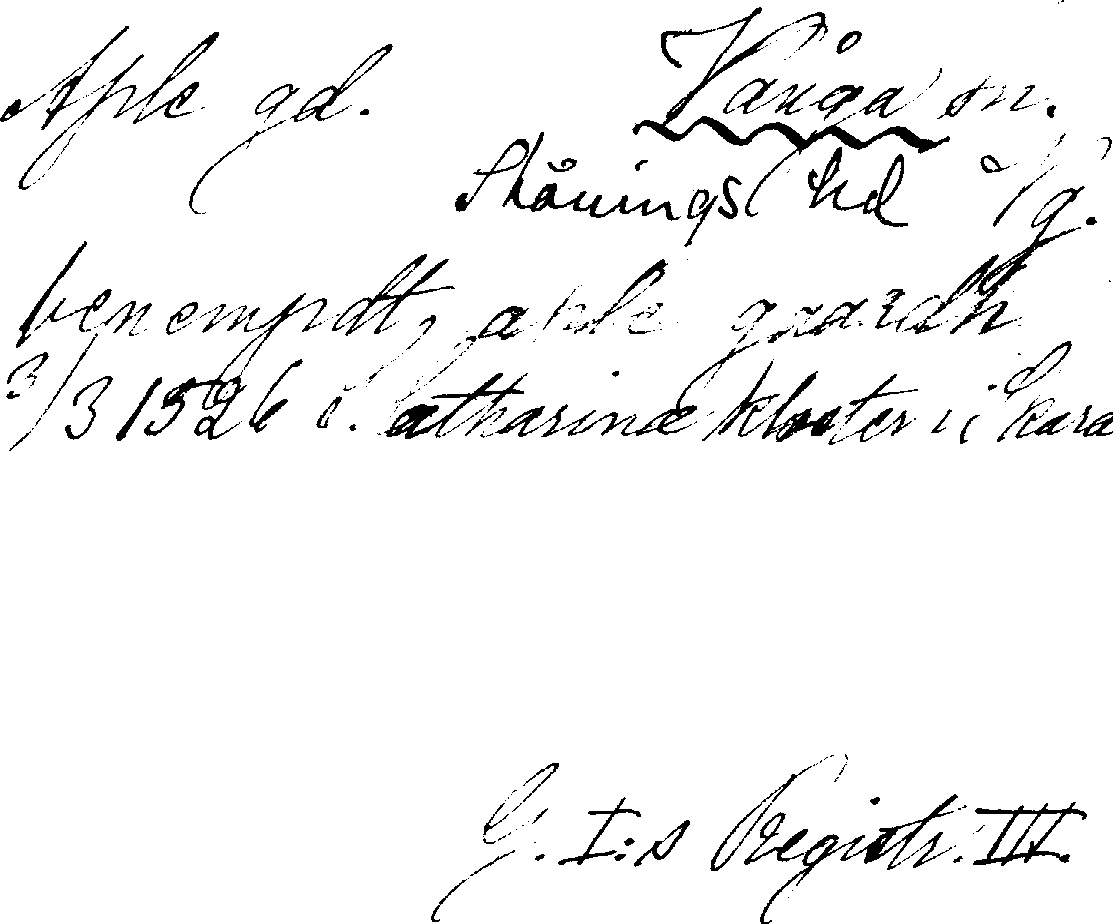 Aple gd. Vånga sn.
Skånings hd Vg.
benempdt, aple gaardh
3/3 1526 S. Catharinæ kloster i Skara
G. I:s Registr. III.